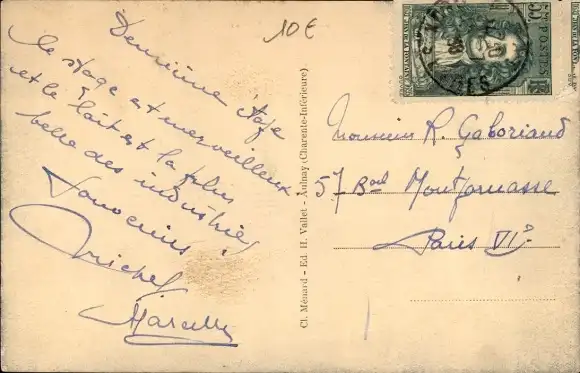 10€
Dernière étape
le stage est merveilleux
et le lait est la plus
belle des industries
Souvenirs
Michel
Marcelle
Cl. Ménard - Ed. H. Vallet - Aulnay (Charente-Inférieure)
POSTES
Monsieur R. Gaboriaud
57 Bard Montparnasse
Paris VIe